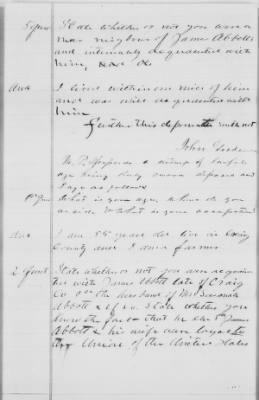 5 Ques State whether or not you were a
near neighbor of James Abbott
and intimately acquainted with
him,
Ans I lived within one mile of him
and was well acquainted with
him
further this deponent saith not
John
W. P. a witness of lawful
age being duly sworn deposes and
says as follows
1st Ques What is your age, where do you
reside & what is your occupation
Ans I am 55 years old live in Craig
County and I am a farmer
2 Quest State whether or not you were acquain
ted with James Abbott late of Craig
Co Va the husband of Mrs
Abbott & if so. State whether you
know the fact that he the sd James
Abbott & his wife were loyal to
the Union of the United States